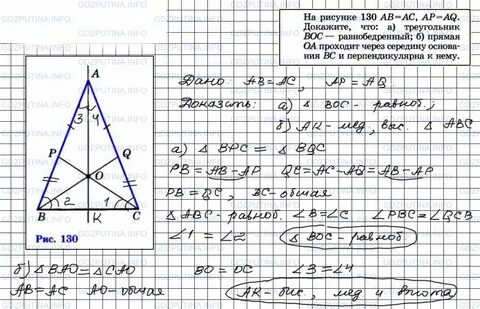 На рисунке 130 AB=AC, AP=AQ.
Докажите, что: а) треугольник
BOC — равнобедренный; б) прямая
OA проходит через середину основа-
ния BC и перпендикулярна к нему.
A
3 4
P Q
O
2 1
B K C
Рис. 130
Дано: AB=AC, AP=AQ
Доказать: а) △ BOC - равноб.;
б) AK-мед, выс. △ ABC
а) △ BPC = △ BQC
PB=AB-AP QC=AC-AQ=AB-AP
PB=QC, BC-общая
△ ABC-равноб. ∠B=∠C ∠PBC=∠QCB
∠1=∠2 △ BOC-равноб
б) △ BAO=△ CAO BO=OC ∠3=∠4
AB=AC AO-общая AK-бис., мед и высота
GDZPUTINA.INFO